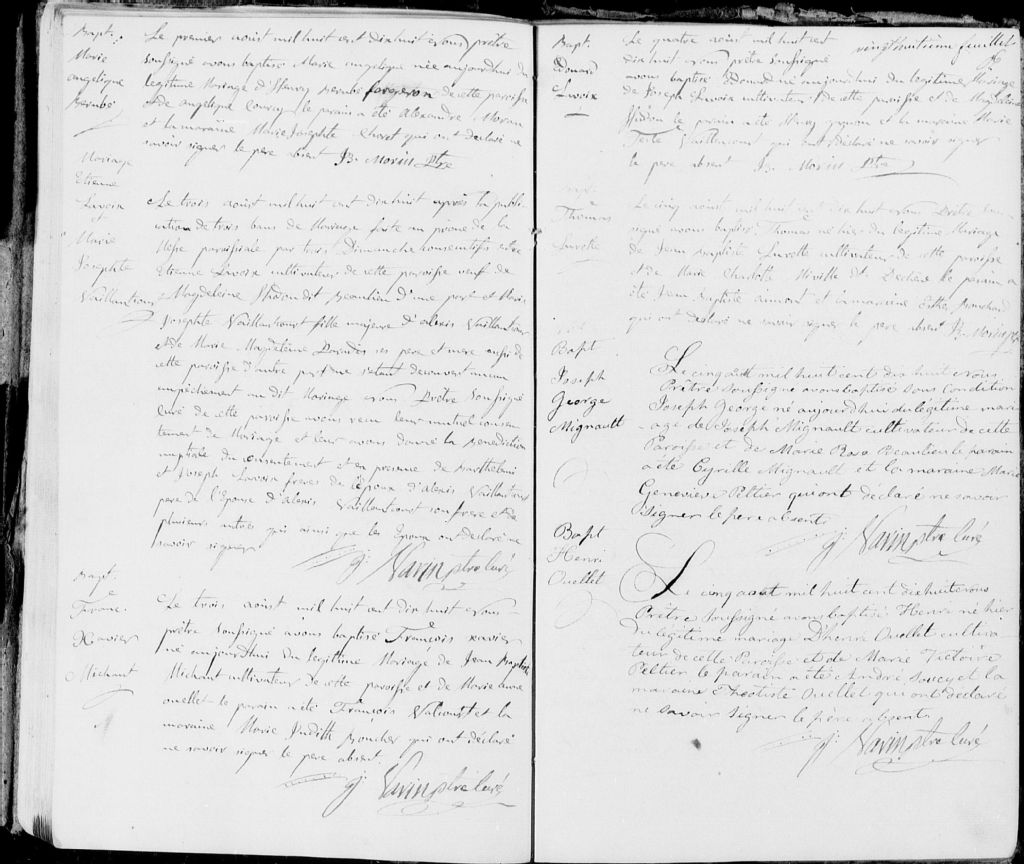 Bapt.
Marie
angelique
Berubé
Le premier aoüst mil huit cent dix huit nous prêtre
soussigné avons baptisé Marie angelique née aujourdhui du
legitime Mariage d'Henry Berubé forgeron de cette paroisse
et de angelique Couray le parain a été Alexandre Moran
et la maraine Marie Josephte Choret qui ont declaré ne
savoir signer le pere absent JB. Morin Ptre
Mariage
Etienne
Lavoix
et
Marie
Josephte
Vaillancour
Le trois aoüst mil huit cent dix huit après la publi-
cation de trois bans de Mariage faite au prone de la
Messe paroissiale par trois Dimanche consecutifs entre
Etienne Lavoix cultivateur de cette paroisse veuf de
Magdeleine dit Beaulieu d'une part et Marie
Josephte Vaillancourt fille majeure d'alexis Vaillancour
et de Marie Magdeleine ses pere et mere aussi de
cette paroisse d'autre part ne s'etant decouvert aucun
empêchement au dit Mariage nous Prêtre soussigné
curé de cette paroisse avons recu leur mutuel consen-
tement de Mariage et leur avons donné la Benediction
nuptiale du consentement et en presence de Barthelemi
et Joseph Lavoix freres de l'époux d'alexis Vaillancour
pere de l'épouse d'alexis Vaillancourt son frere et de
plusieurs autres qui ainsi que les Epoux ont declaré ne
savoir signer
J: Varin ptre Curé
Bapt.
Franc.
Xavier
Michaut
Le trois aoüst mil huit cent dix huit nous
prêtre soussigné avons baptisé François xavier
né aujourdhui du legitime Mariage de Jean Baptiste
Michaut cultivateur de cette paroisse et de Marie anne
ouellet le parain a été François Valcourt et la
maraine Marie Judith Boucher qui ont declaré
ne savoir signer le pere absent.
J: Varin ptre Curé
vingthuitieme feuillet
Bapt.
Edouard
Lavoix
Le quatre aoüst mil huit cent
dix huit nous prêtre soussigné
avons baptisé Edouard né aujourdhui du legitime Mariage
de Joseph Lavoix cultivateur de cette paroisse et de Magdeleine
le parain a été Henry et la maraine Marie
Vaillancourt qui ont declaré ne savoir signer
le pere absent JB. Morin Ptre
Bapt.
Thomas
Lavoie
Le cinq aoüst mil huit cent dix huit nous Prêtre sous-
signé avons baptisé Thomas né hier du legitime Mariage
de Jean Baptiste cultivateur de cette paroisse
et de Marie Charlotte Miville dt Dechêne le parain a
été Jean Baptiste et la maraine Esther Bouchard
qui ont declaré ne savoir signer le pere absent JB. Morin Ptre
Bapt
Joseph
George
Mignault
Le cinq aoüt mil huit cent dix huit nous
Prêtre Soussigné avons baptisé sous condition
Joseph George né aujourd'hui du légitime mari-
age de Joseph Mignault cultivateur de cette
Paroisse et de Marie Rose Beaulieu le parain
a été Cyrille Mignault et la maraine Marie
Genevieve Peltier qui ont déclaré ne savoir
signer le père absent.
J: Varin ptre Curé
Bapt
Henri
Ouellet
Le cinq aout mil huit cent dix huit nous
Prêtre soussigné avons baptisé Henri né hier
du légitime mariage D'henri Ouellet cultiva-
teur de cette Paroisse et de Marie Victoire
Peltier le parain a été André Soucy et la
maraine Théotiste Ouellet qui ont déclaré
ne savoir signer le père absent.
J: Varin ptre Curé